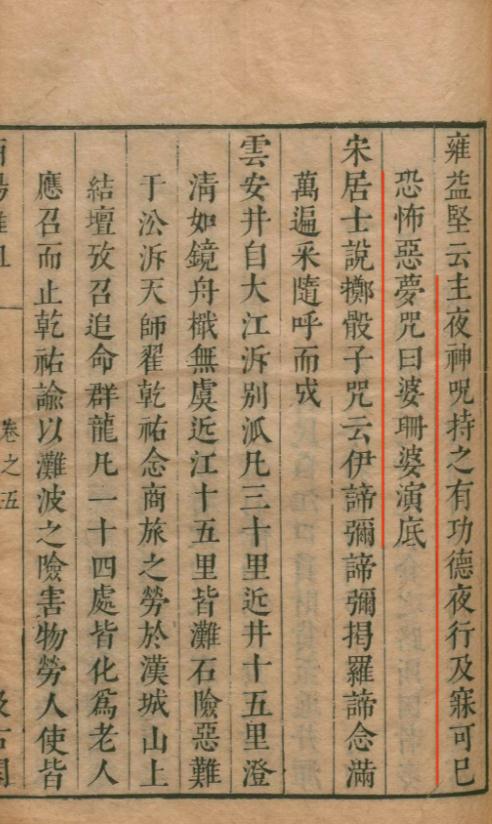 雍益堅云主夜神呪持之有功德夜行及寐可已
恐怖惡夢咒曰婆珊婆演底
宋居士說擲骰子咒云伊諦彌諦彌揭羅諦念滿
萬遍采隨呼而成
雲安井自大江泝別派凡三十里近井十五里澄
清如鏡舟檝無虞近江十五里皆灘石險惡難
于沿泝天師翟乾祐念商旅之勞於漢城山上
結壇攷召追命群龍凡一十四處皆化爲老人
應召而止乾祐諭以灘波之險害物勞人使皆
卷之五